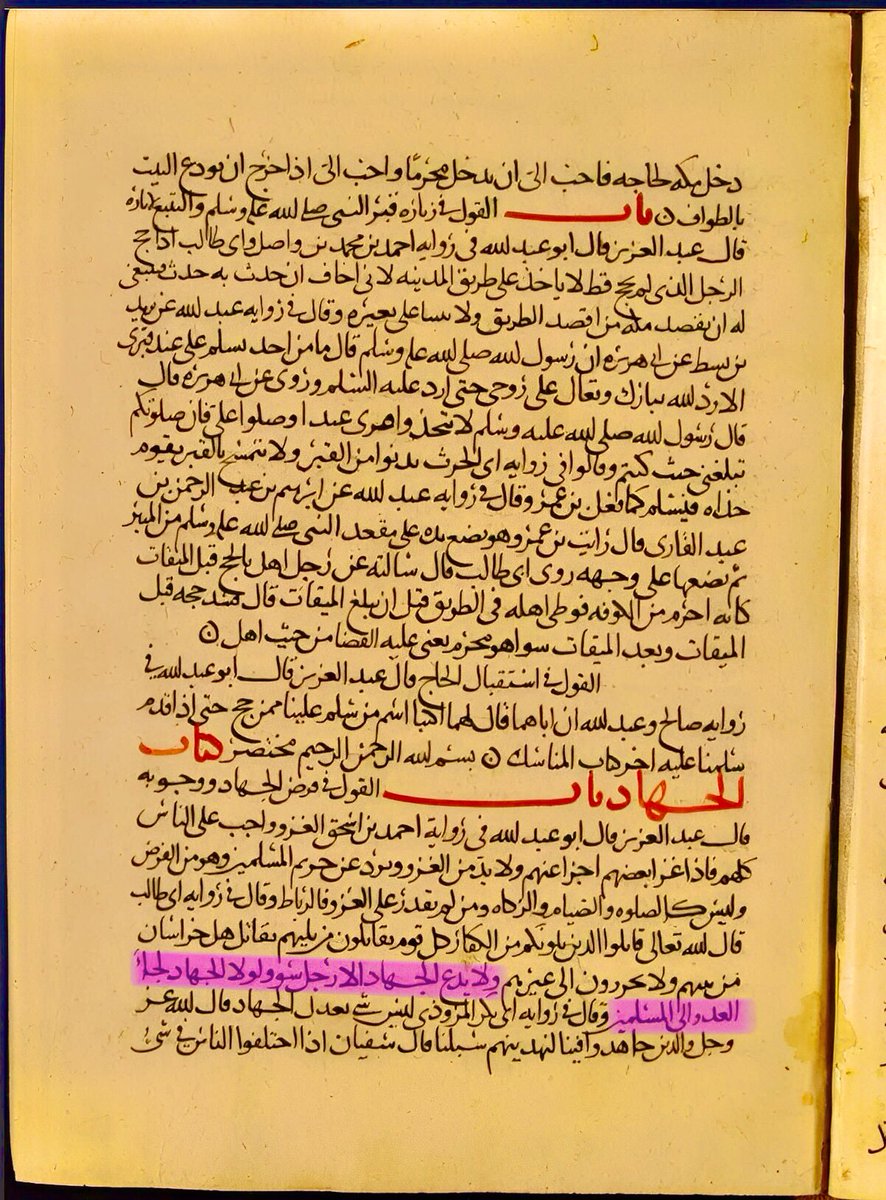 دخل مكه لحاجه فاحب الى ان يدخل محرما واحب الى اذا خرج ان يودع البيت
بالطواف ن باب القول في زياره قبر النبي صلى الله عليه وسلم والبقيع
قال عبد العزيز قال ابو عبد الله في روايه احمد بن محمد بن واصل وابي طالب اذا حج
الرجل الذي لم يحج قط لا ياخذ على طريق المدينه لاني اخاف ان حدث به حدث فينبغي
له ان يقصد مكه من اقصد الطريق ولا يتساعى بغيره وقال في روايه عبد الله عن يزيد
بن قسيط عن ابي هريره ان رسول الله صلى الله عليه وسلم قال ما من احد يسلم على عند قبري
الا رد الله تبارك وتعالى على روحي حتى ارد عليه السلم وروى عن ابي هريره قال
قال رسول الله صلى الله عليه وسلم لا تتخذوا قبرى عيدا وصلوا على فان صلوتكم
تبلغنى حيث كنتم وقالوا في روايه ابى الحرث يدنوا من القبر ولا يتمسح بالقبر يقوم
حذاه فيسلم كما فعل بن عمر وقال في روايه عبد الله عن ابرهيم بن عبد الرحمن بن
عبد القارى قال رايت بن عمر وهو يضع يده على مقعد النبي صلى الله عليه وسلم من المنبر
ثم يضعها على وجهه روى ابى طالب قال سالته عن رجل اهل بالحج قبل الميقات
كانه احرم من الكوفه فوطى اهله في الطريق قبل ان يبلغ الميقات قال فسد حجه قبل
الميقات وبعد الميقات سوا هو محرم يعنى عليه القضا من حيث اهل ن
القول في استقبال الحاج قال عبد العزيز قال ابو عبد الله في
روايه صالح وعبد الله ان اباهما قال لهما اكتبا اسم من سلم علينا ممن حج حتى اذا قدم
سلمنا عليه اخر كتاب المناسك ن بسم الله الرحمن الرحيم مختصر كتاب
الجهاد باب القول في فرض الجهاد ووجوبه
قال عبد العزيز قال ابو عبد الله في رواية احمد بن اسحق الغزو واجب على الناس
كلهم فاذا غزا بعضهم اجزا عنهم ولا بد من الغزو ويرد عن حريم المسلمين وهو من الفرض
وليس كالصلوه والصيام والزكاه ومن لم يقدر على الغزو فالرباط وقال في روايه ابى طالب
قال الله تعالى قاتلوا الذين يلونكم من الكفار كل قوم يقاتلون من يليهم يقاتل اهل خراسان
من يليهم ولا يخرجون الى غيرهم ولا يدع الجهاد الا رجل سوو لولا الجهاد لجا
العدو الى المسلمين وقال في روايه ابى بكر المروذي ليس شي يعدل الجهاد قال الله عز
وجل والذين جاهدوا فينا لنهدينهم سبلنا قال سفيان اذا اختلفوا الناس في شي